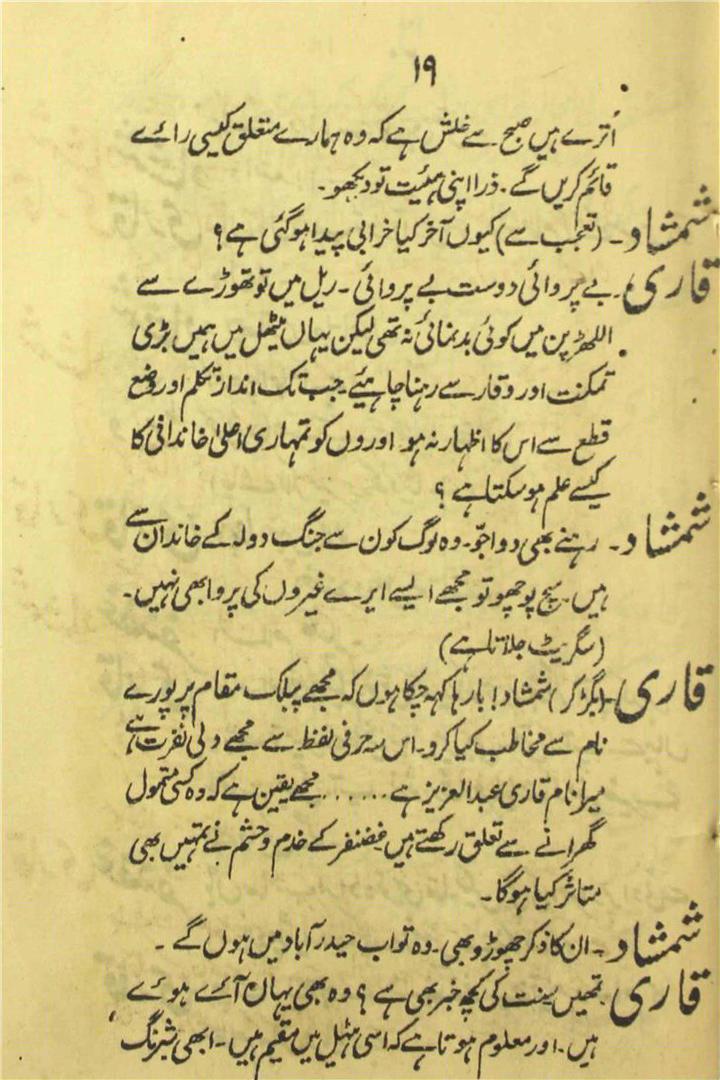 ۱۹
اُترے ہیں صبح سے خلش ہے کہ وہ ہمارے متعلق کیسی رائے
قائم کریں گے۔ ذرا اپنی ہئیت تو دیکھو۔
شمشاد۔ (تعجب سے) کیوں آخر کیا خرابی پیدا ہوگئی ہے؟
قاری۔ بے پروائی دوست بے پروائی۔ ریل میں تو تھوڑے سے
اللھڑپن میں کوئی بدنمائی نہ تھی لیکن یہاں ہٹیل میں ہمیں بڑی
تمکنت اور وقار سے رہنا چاہئیے۔ جب تک انداز تکلم اور وضع
قطع سے اس کا اظہار نہ ہو اوروں کو تمہاری اعلیٰ خاندانی کا
کیسے علم ہوسکتا ہے؟
شمشاد۔ رہنے بھی دو اجّو۔ وہ لوگ کون سے جنگ دولہ کے خاندان سے
ہیں۔ سچ پوچھو تو مجھے ایسے ایرے غیروں کی پروا بھی نہیں۔
(سگریٹ جلاتا ہے)
قاری۔ (بگڑ کر) شمشاد! بارہا کہہ چکا ہوں کہ مجھے پبلک مقام پر پورے
نام سے مخاطب کیا کرو۔ اس سہ حرفی لفظ سے مجھے دلی نفرت ہے
میرا نام قاری عبدالعزیز ہے...... مجھے یقین ہے کہ وہ کسی متمول
گھرانے سے تعلق رکھتے ہیں غضنفر کے خدم و حشم نے تمہیں بھی
متاثر کیا ہوگا۔
شمشاد۔ ان کا ذکر چھوڑو بھی۔ وہ تو اب حیدرآباد میں ہوں گے۔
قاری۔ تمھیں سنت کی کچھ خبر بھی ہے؟ وہ بھی یہاں آئے ہوئے
ہیں۔ اور معلوم ہوتا ہے کہ اسی ہٹیل میں مقیم ہیں۔ ابھی شبرنگ